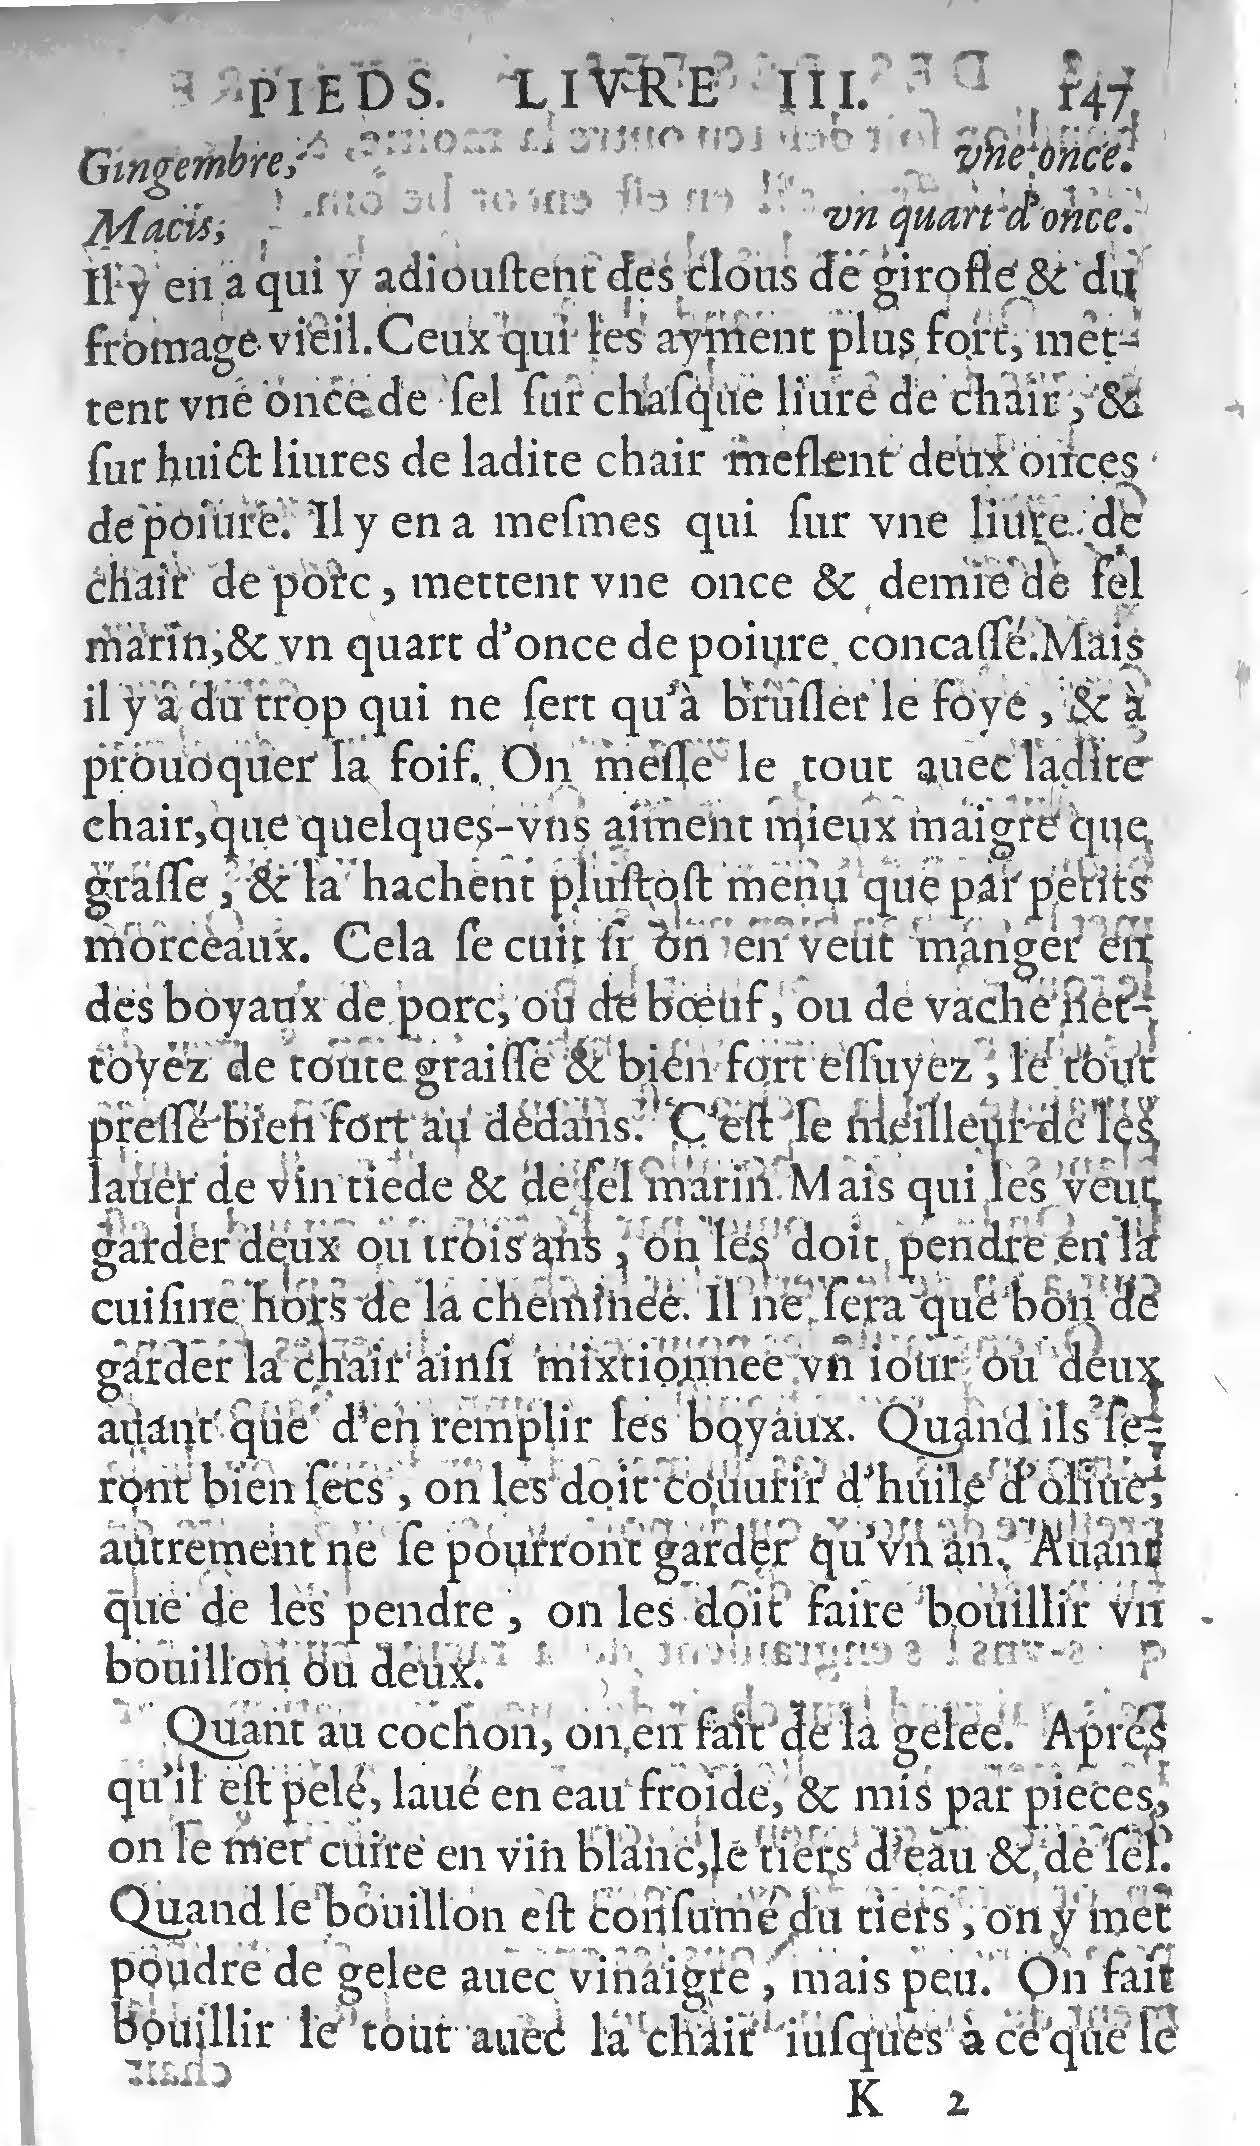 PIEDS. LIVRE III. 147
Gingembre, vne once.
Macis, vn quart d'once.
Il y en a qui y adiouſtent des clous de girofle & du
fromage vieil. Ceux qui les ayment plus fort, met-
tent vne once de ſel ſur chaſque liure de chair, &
ſur huict liures de ladite chair meſlent deux onces
de poiure. Il y en a meſmes qui ſur vne liure de
chair de porc, mettent vne once & demie de ſel
marin, & vn quart d'once de poiure concaſſé. Mais
il y a du trop qui ne ſert qu'à bruſler le foye, & à
prouoquer la ſoif. On meſle le tout auec ladite
chair, que quelques-vns aiment mieux maigre que
graſſe, & la hachent pluſtoſt menu que par petits
morceaux. Cela ſe cuit ſi on en veut manger en
des boyaux de porc, ou de bœuf, ou de vache net-
toyez de toute graiſſe & bien fort eſſuyez, le tout
preſſé bien fort au dedans. C'eſt le meilleur de les
lauer de vin tiede & de ſel marin. Mais qui les veut
garder deux ou trois ans, on les doit pendre en la
cuiſine hors de la cheminee. Il ne ſera que bon de
garder la chair ainſi mixtionnee vn iour ou deux
auant que d'en remplir les boyaux. Quand ils ſe-
ront bien ſecs, on les doit couurir d'huile d'oliue,
autrement ne ſe pourront garder qu'vn an. Auant
que de les pendre, on les doit faire bouillir vn
bouillon ou deux.
Quant au cochon, on en fait de la gelee. Aprés
qu'il eſt pelé, laué en eau froide, & mis par pieces,
on le met cuire en vin blanc, le tiers d'eau & de ſel.
Quand le bouillon eſt conſumé du tiers, on y met
poudre de gelee auec vinaigre, mais peu. On fait
bouillir le tout auec la chair iuſques à ce que le
K 2